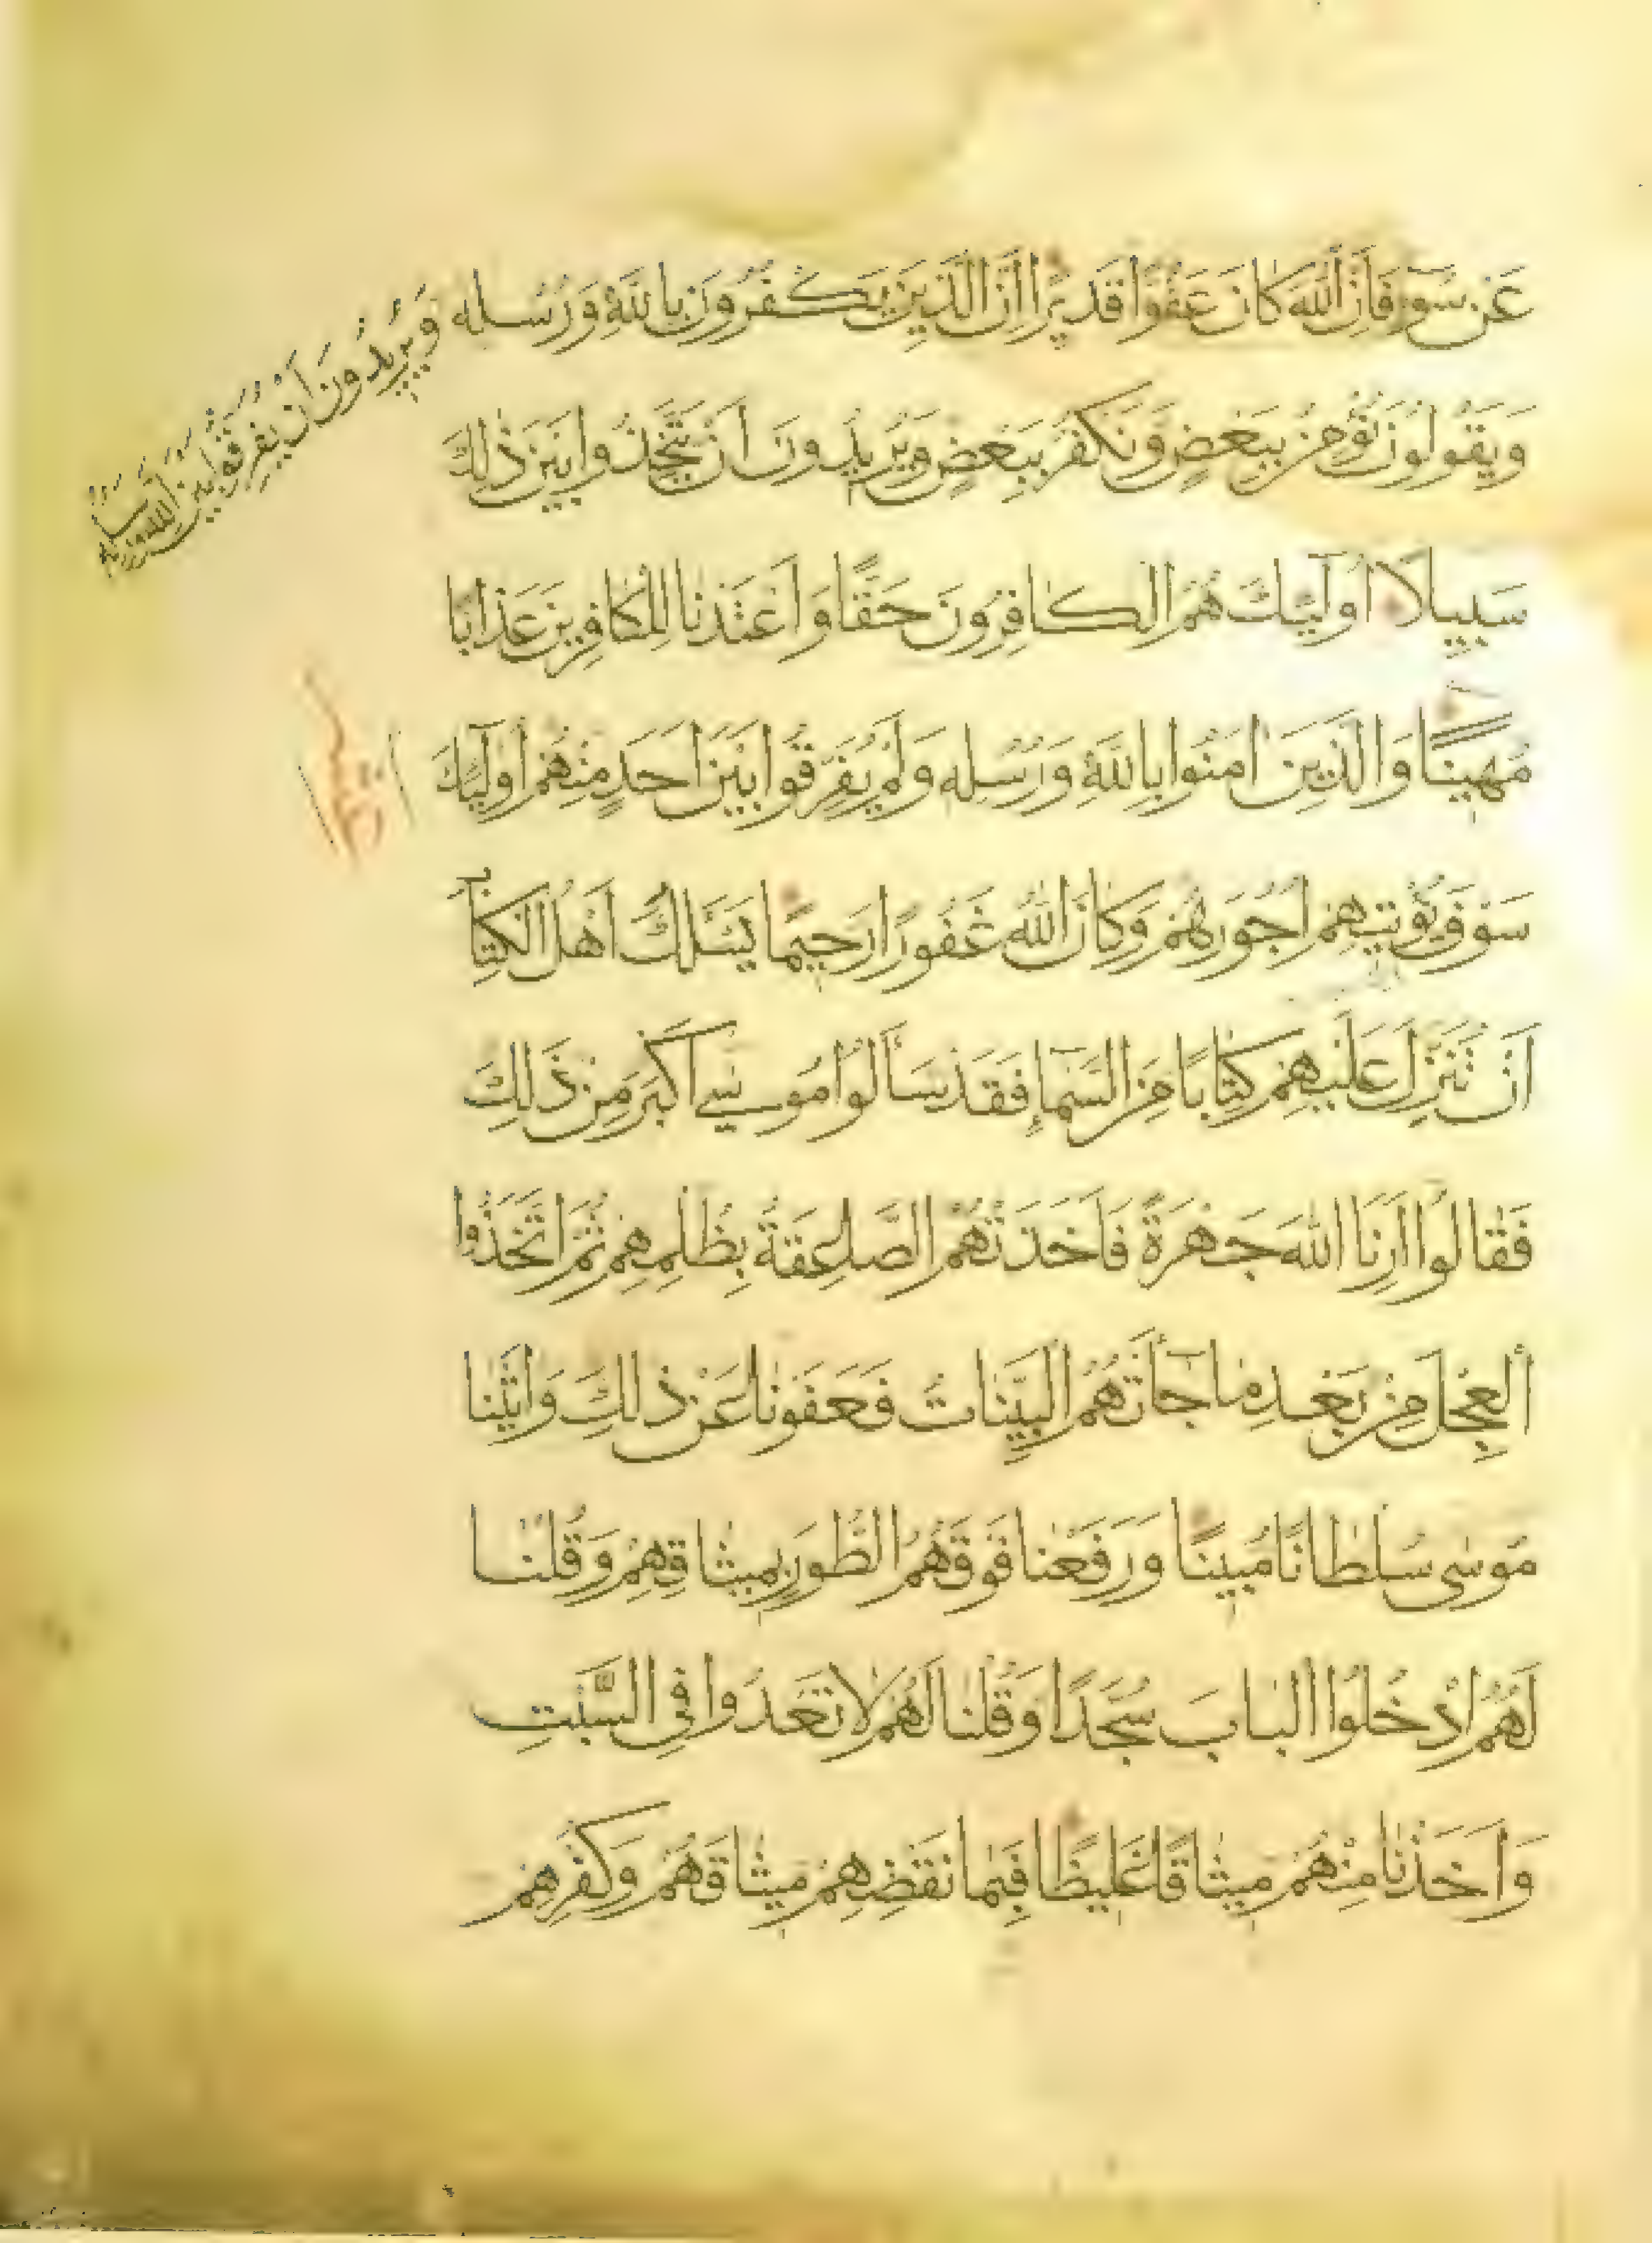 عَنْ سُوٓءٍ فَاِنَّ اللّٰهَ كَانَ عَفُوًّا قَدِيرًا اِنَّ الَّذِينَ يَكْفُرُونَ بِاللّٰهِ وَرُسُلِهِ
وَيُرِيدُونَ اَنْ يُفَرِّقُوا بَيْنَ اللّٰهِ وَرُسُلِهِ
وَيَقُولُونَ نُؤْمِنُ بِبَعْضٍ وَنَكْفُرُ بِبَعْضٍ وَيُرِيدُونَ اَنْ يَتَّخِذُوا بَيْنَ ذٰلِكَ
سَبِيلًا اُولٰٓئِكَ هُمُ الْكَافِرُونَ حَقًّا وَاَعْتَدْنَا لِلْكَافِرِينَ عَذَابًا
مُهِينًا وَالَّذِينَ اٰمَنُوا بِاللّٰهِ وَرُسُلِهِ وَلَمْ يُفَرِّقُوا بَيْنَ اَحَدٍ مِنْهُمْ اُولٰٓئِكَ
سَوْفَ يُؤْتِيهِمْ اُجُورَهُمْ وَكَانَ اللّٰهُ غَفُورًا رَحِيمًا يَسْـَٔلُكَ اَهْلُ الْكِتَابِ
اَنْ تُنَزِّلَ عَلَيْهِمْ كِتَابًا مِنَ السَّمَآءِ فَقَدْ سَاَلُوا مُوسٰى اَكْبَرَ مِنْ ذٰلِكَ
فَقَالُوا اَرِنَا اللّٰهَ جَهْرَةً فَاَخَذَتْهُمُ الصَّاعِقَةُ بِظُلْمِهِمْ ثُمَّ اتَّخَذُوا
الْعِجْلَ مِنْ بَعْدِ مَا جَآءَتْهُمُ الْبَيِّنَاتُ فَعَفَوْنَا عَنْ ذٰلِكَ وَاٰتَيْنَا
مُوسٰى سُلْطَانًا مُبِينًا وَرَفَعْنَا فَوْقَهُمُ الطُّورَ بِمِيثَاقِهِمْ وَقُلْنَا
لَهُمُ ادْخُلُوا الْبَابَ سُجَّدًا وَقُلْنَا لَهُمْ لَا تَعْدُوا فِى السَّبْتِ
وَاَخَذْنَا مِنْهُمْ مِيثَاقًا غَلِيظًا فَبِمَا نَقْضِهِمْ مِيثَاقَهُمْ وَكُفْرِهِمْ